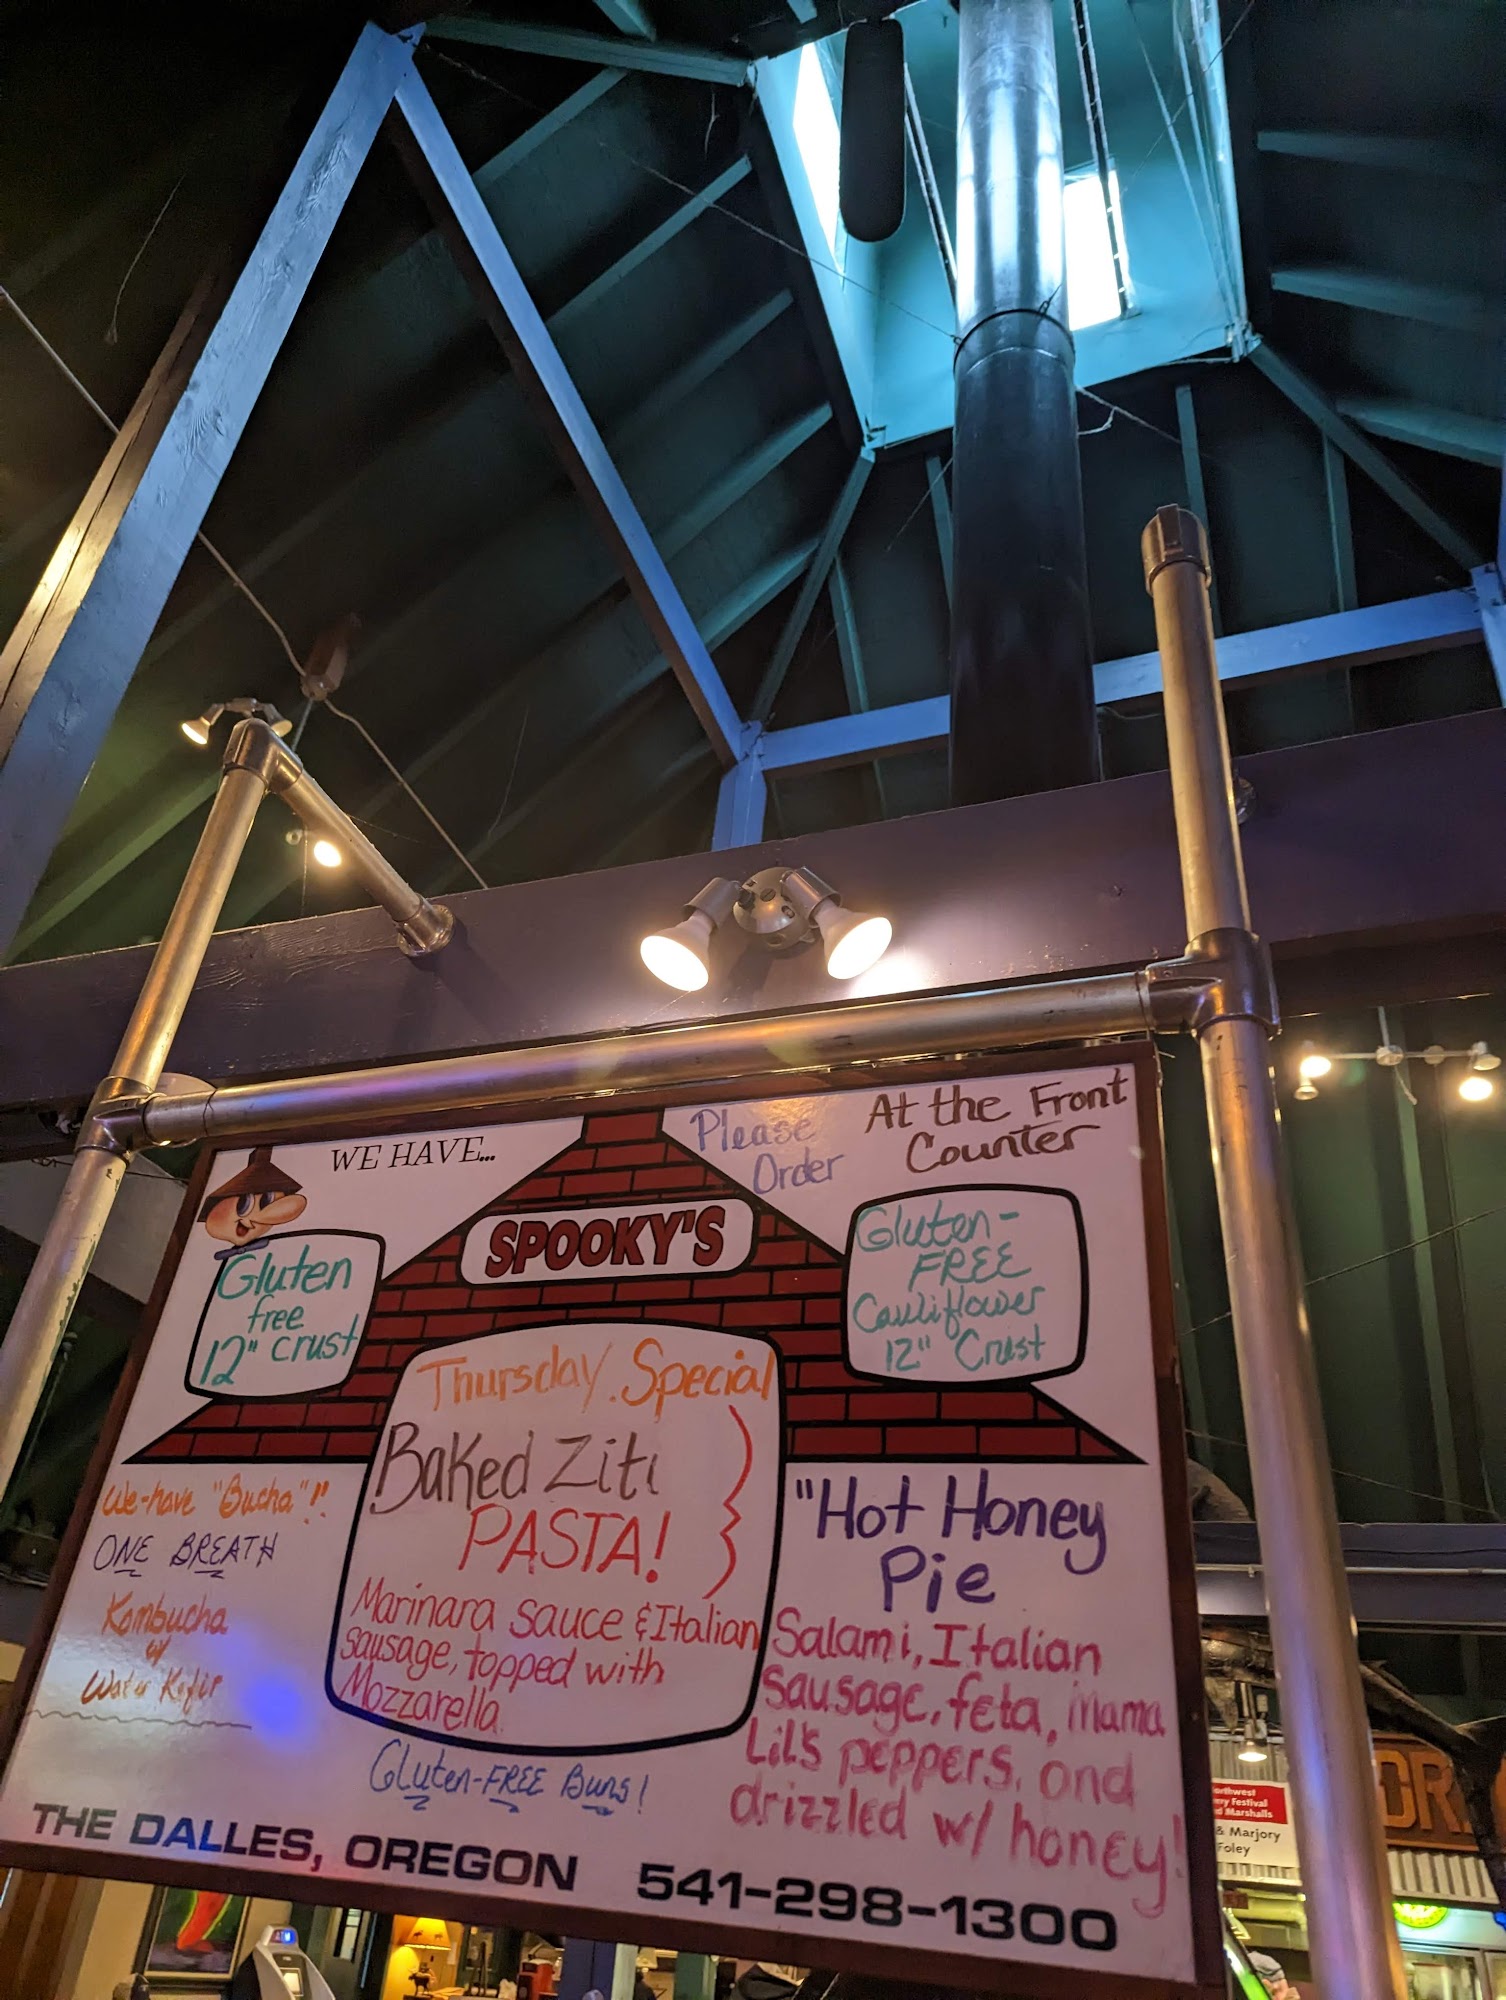 WE HAVE...
Please
Order
At the Front
Counter
SPOOKY'S
Gluten
free
12" crust
Gluten-
FREE
Cauliflower
12" Crust
Thursday Special
Baked Ziti
PASTA!
Marinara sauce & Italian
sausage, topped with
Mozzarella.
We have "Bucha"!!
ONE BREATH
Kombucha
w/
Water Kefir
"Hot Honey
Pie
Salami, Italian
Sausage, feta, Mama
Lil's peppers, and
drizzled w/ honey!
Gluten-FREE Buns!
THE DALLES, OREGON 541-298-1300
Festival
Marshalls
& Marjory
Foley